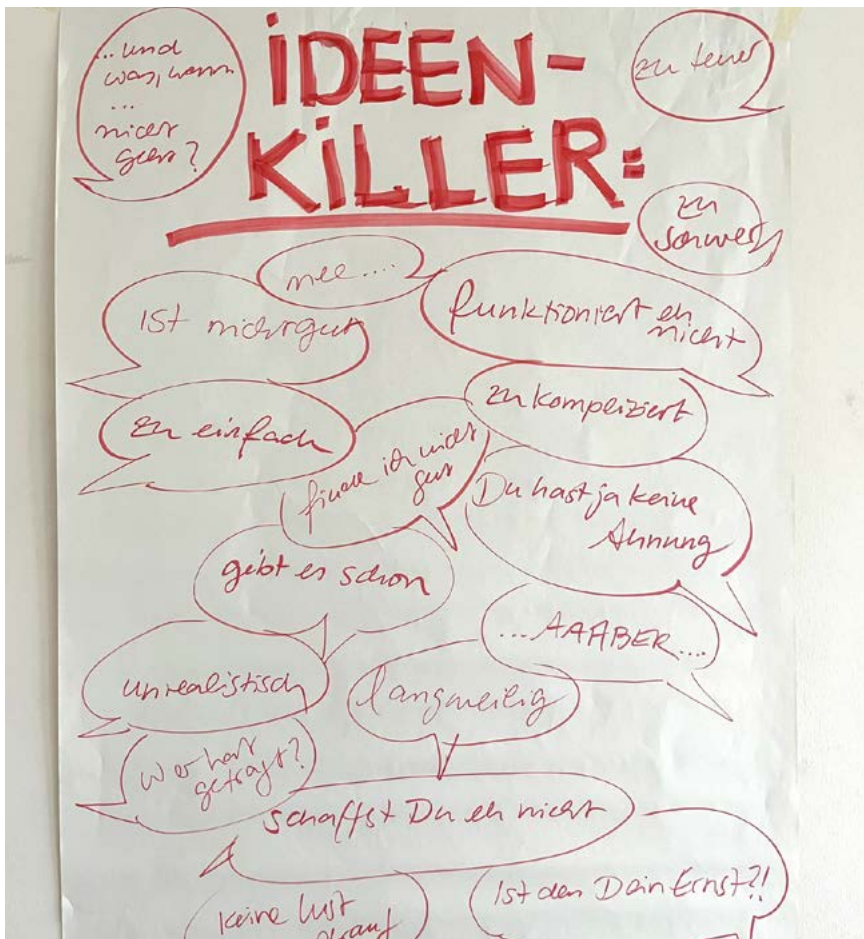 ... und
was, wenn
...
nicht
geht?
IDEEN-
KILLER:
zu teuer
zu
schwer
nee....
Ist nicht gut
funktioniert eh
nicht
zu einfach
zu kompliziert
finde ich nicht
gut
Du hast ja keine
Ahnung
gibt es schon
... AAABER....
unrealistisch
langweilig
Wer hat
gefragt?
schaffst Du eh nicht
Ist den Dein Ernst?!
keine Lust